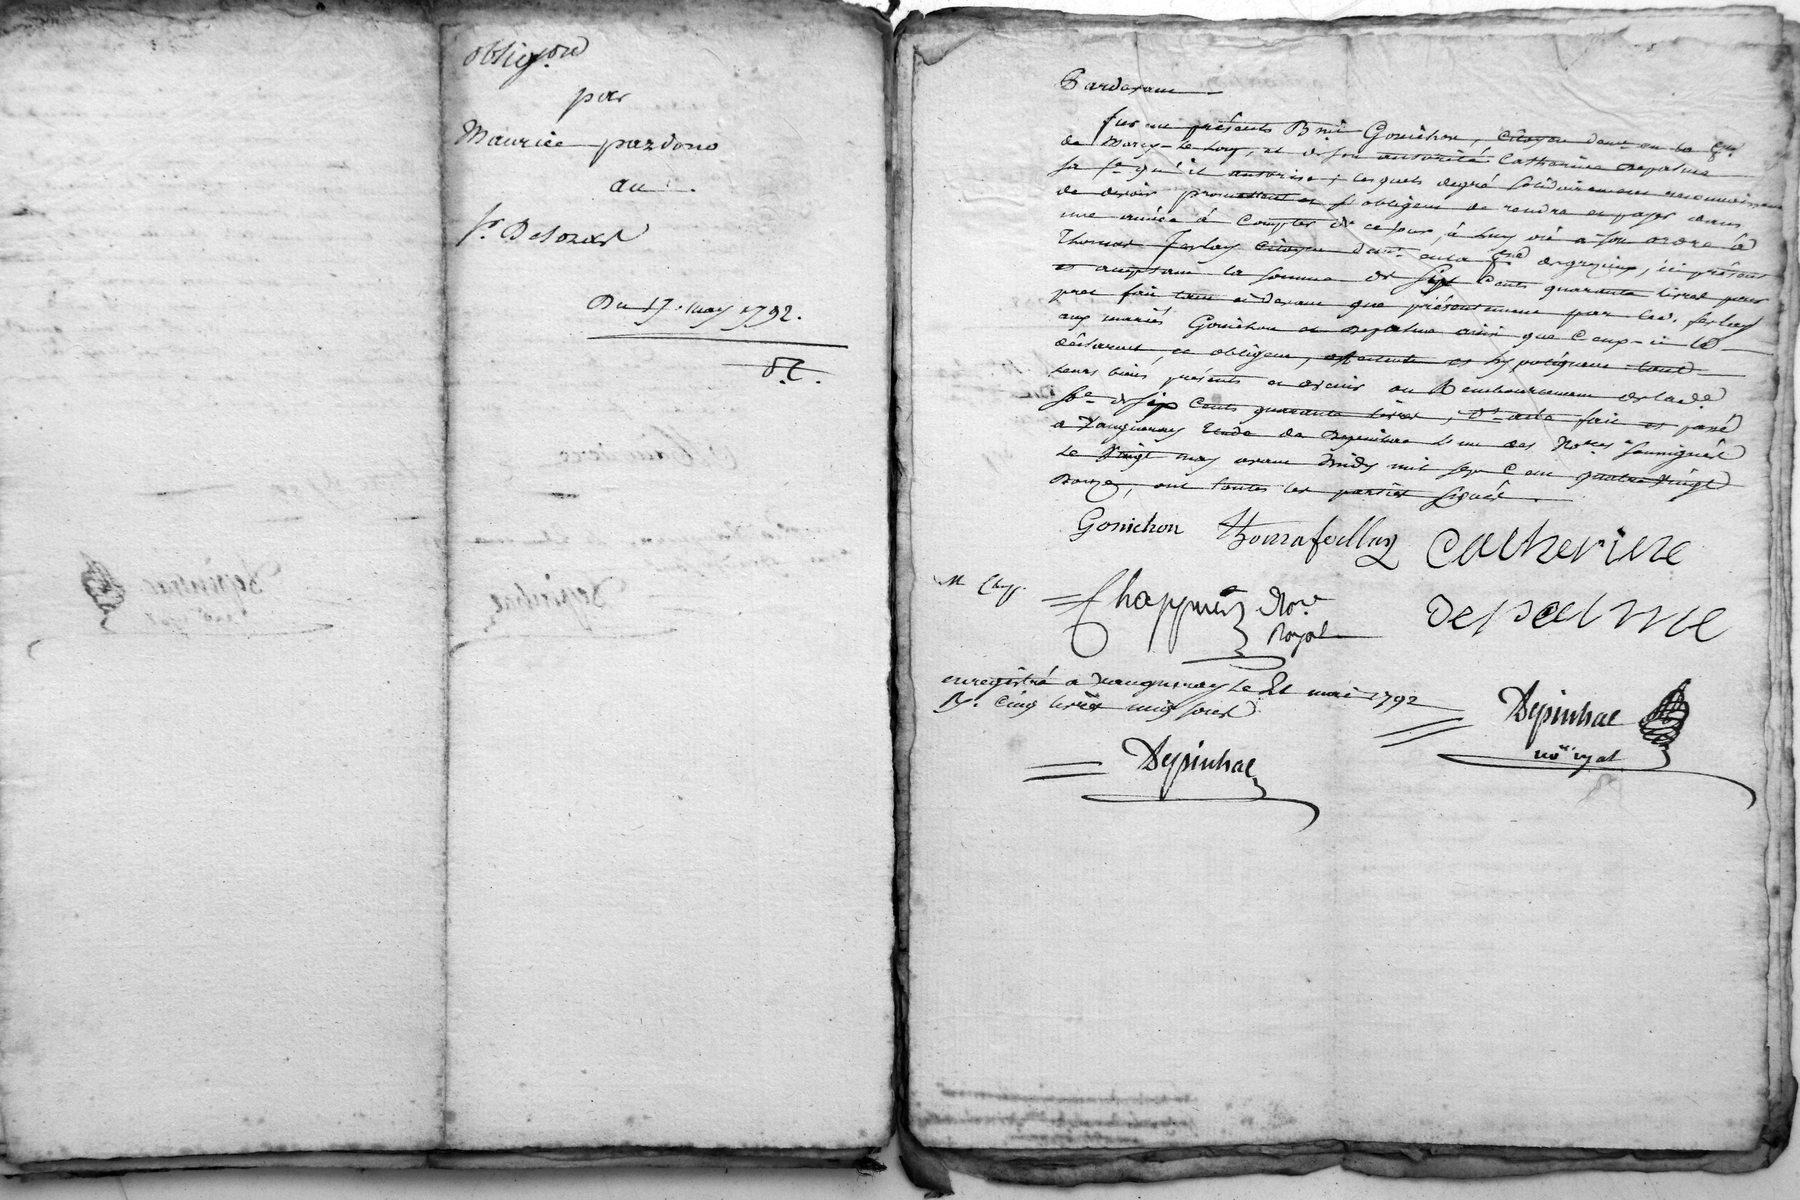 obligaon
par
Maurice pardono
au
Sr. Delorat
Du 17. may 1792.
Pardevant
fut en présents Bmi Gonichon, citoyen demt. en la
de Marcy-le Loup, et de son autorité Catherine Depalme
sa fe. qu'il autorise; lesquels degré solidairement reconnoissent
de devoir promettent et s'obligent de rendre et payer dans
une année à Compter de ce jour, à luy où a son ordre à
Thomas Ferlay citoyen demt. en la degrezieux, ici présent
et acceptant la somme de Six Cents quarante livres pour
pret fait tant cidevant que présentement par led. ferlay
aux mariés Gonichon et Depalme ainsi que Ceux-ci le
déclarent, et obligent, affectent et hypotéquent tous
leurs biens présents et avenir au Remboursement de lade.
Se. de Six Cents quarante livres, Dt. acte fait et passé
a Vaugneray Etude de Depinhac l'un des Nores soussignés
Le Vingt may avant Midy mil sept Cent quatre Vingt
Douze, ont toutes les parties signés.
Gonichon Thomaferllay Catherine
Chappuis Nore. Depalme
Royal
enregistré a Vaugneray Le 21 mai 1792
R. Cinq livres sous
Depinhac
Depinhac
nore royal